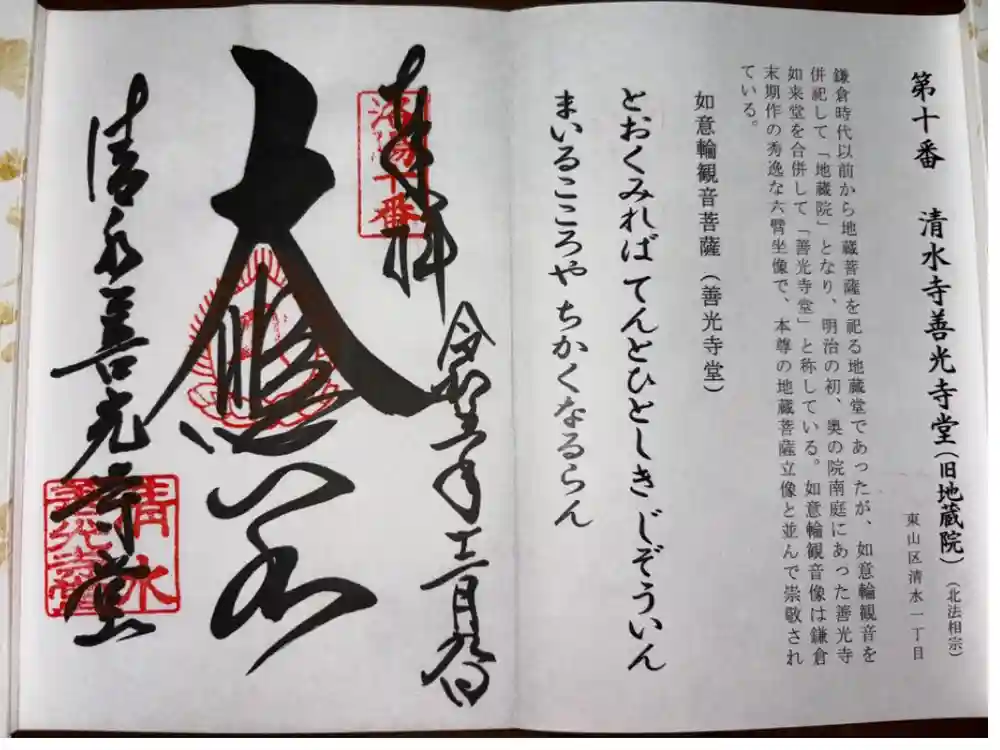 第十番　清水寺善光寺堂（旧地蔵院）（北法相宗）
東山区清水一丁目
鎌倉時代以前から地蔵菩薩を祀る地蔵堂であったが、如意輪観音を
併祀して「地蔵院」となり、明治の初、奥の院南庭にあった善光寺
如来堂を合併して「善光寺堂」と称している。如意輪観音像は鎌倉
末期作の秀逸な六臂坐像で、本尊の地蔵菩薩立像と並んで崇敬され
ている。
如意輪観音菩薩（善光寺堂）
とおくみれば てんとひとしき じぞういん
まいるこころや ちかくなるらん
奉拝
洛陽十番
令和 年十二月 日
大
清水善光寺堂
清水